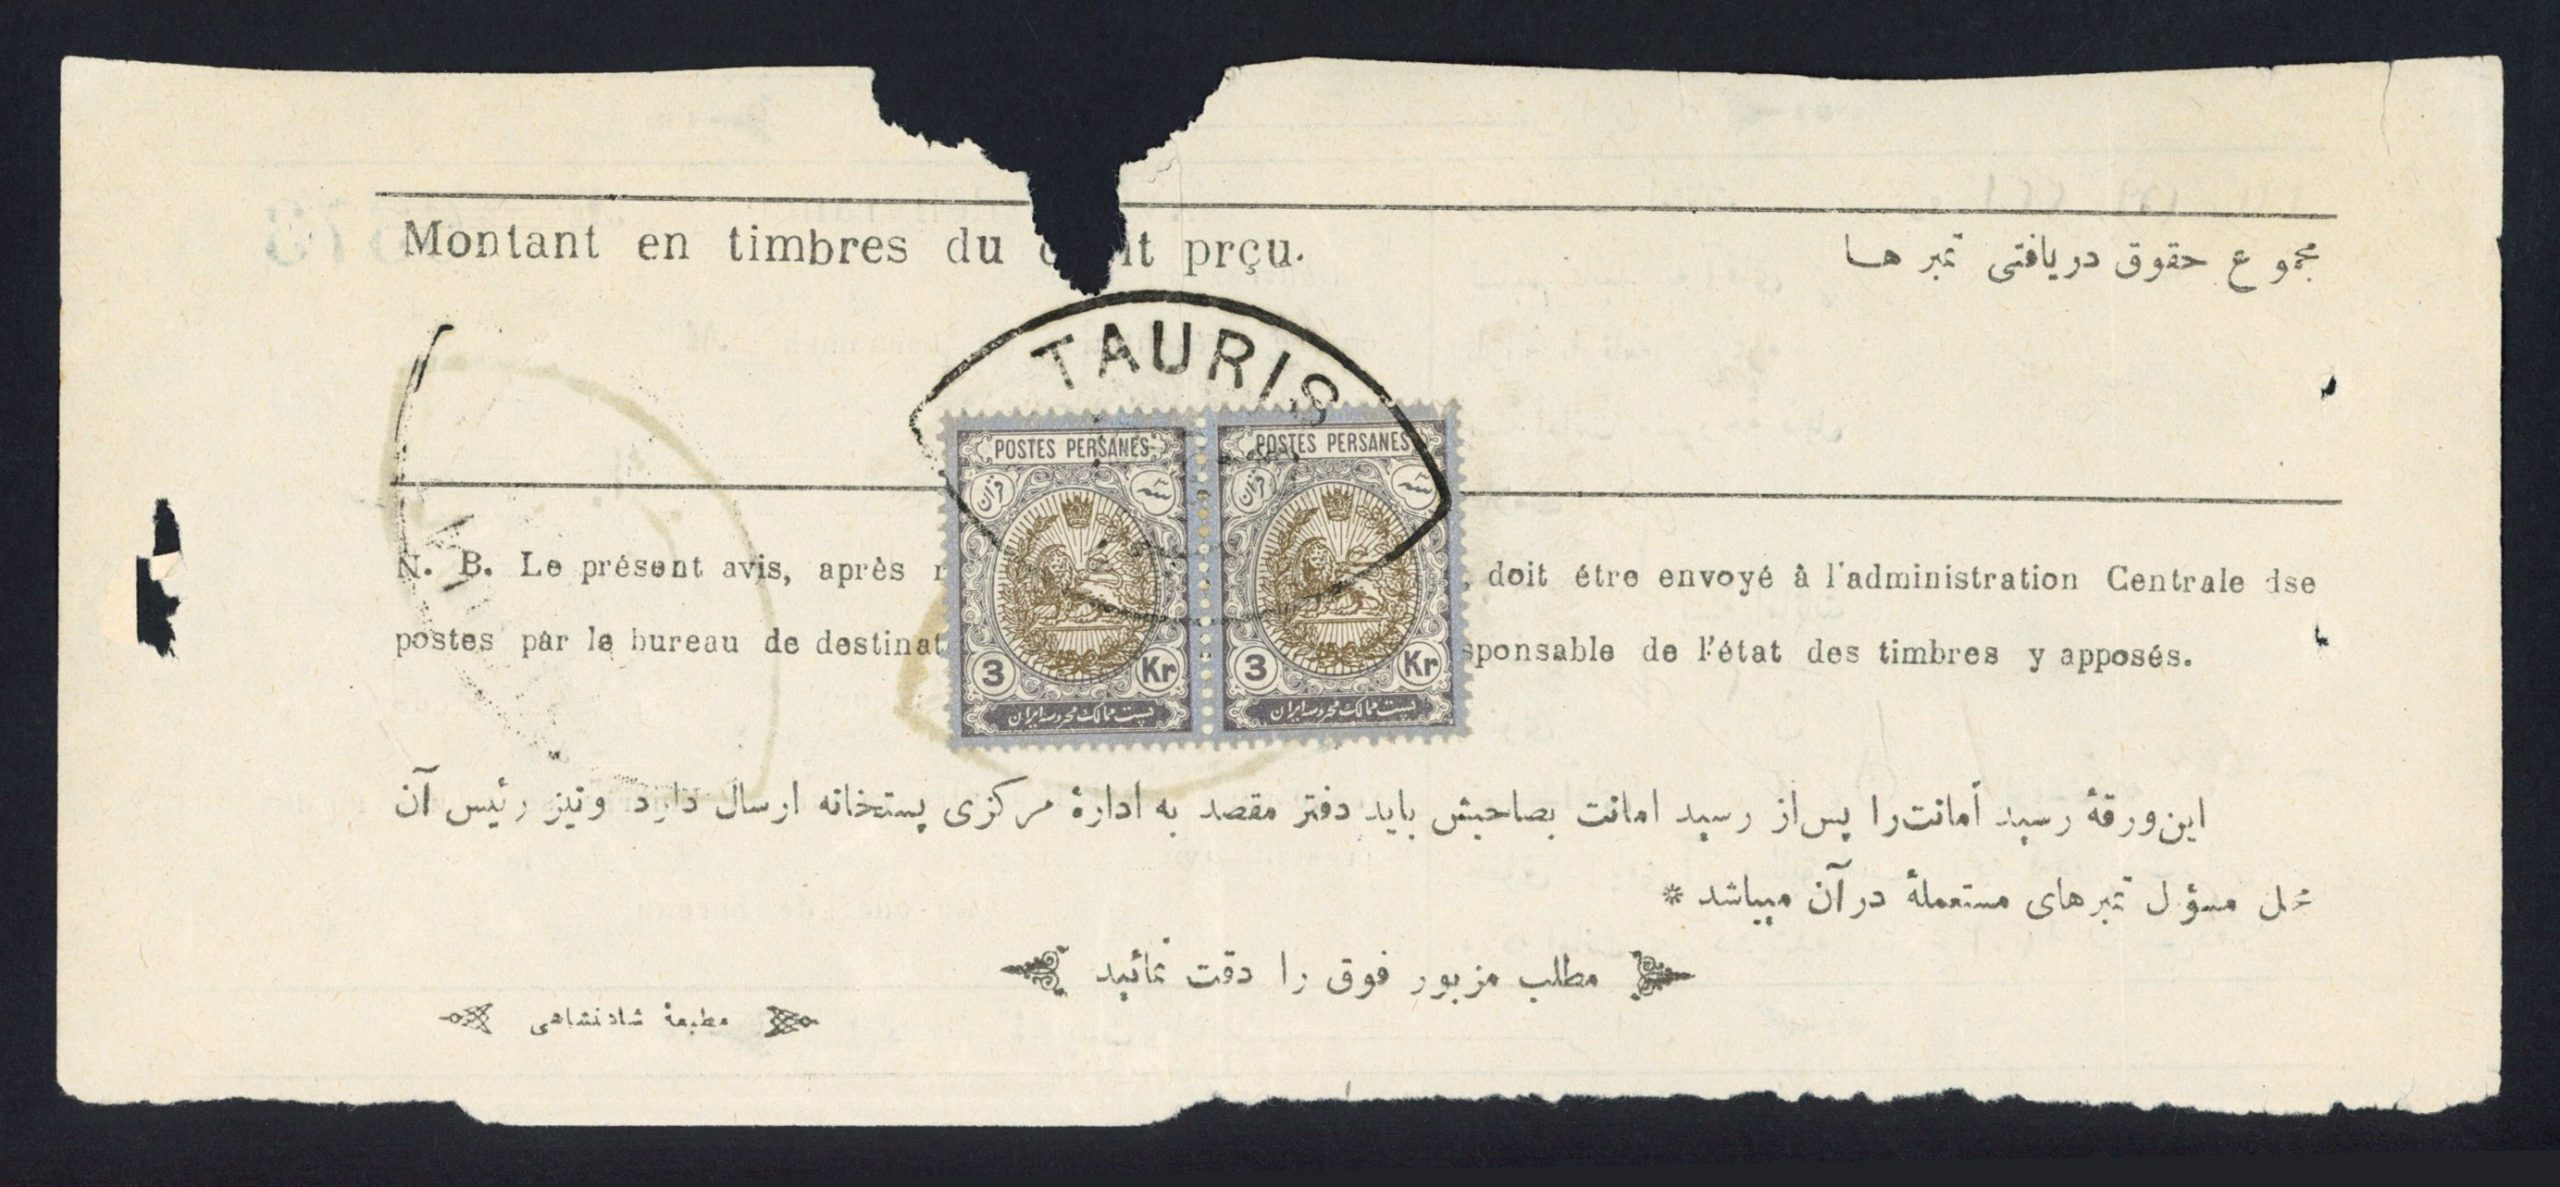 Montant en timbres du prçu.
مجموع حقوق دریافتی تمبر ها
TAURIS
POSTES PERSANES
قران
سه
3 Kr
پست ممالک محروسه ایران
POSTES PERSANES
قران
سه
3 Kr
پست ممالک محروسه ایران
N. B. Le présent avis, après doit étre envoyé à l'administration Centrale dse
postes par le bureau de destinat sponsable de l'état des timbres y apposés.
این ورقهٔ رسید أمانت را پس از رسید امانت بصاحبش باید دفتر مقصد به ادارهٔ مرکزی پستخانه ارسال دارد ونیز رئیس آن
محل مسؤل تمبرهای مستعملهٔ در آن میباشد *
مطلب مزبور فوق را دقت نمائید
مطبعهٔ شاهنشاهی